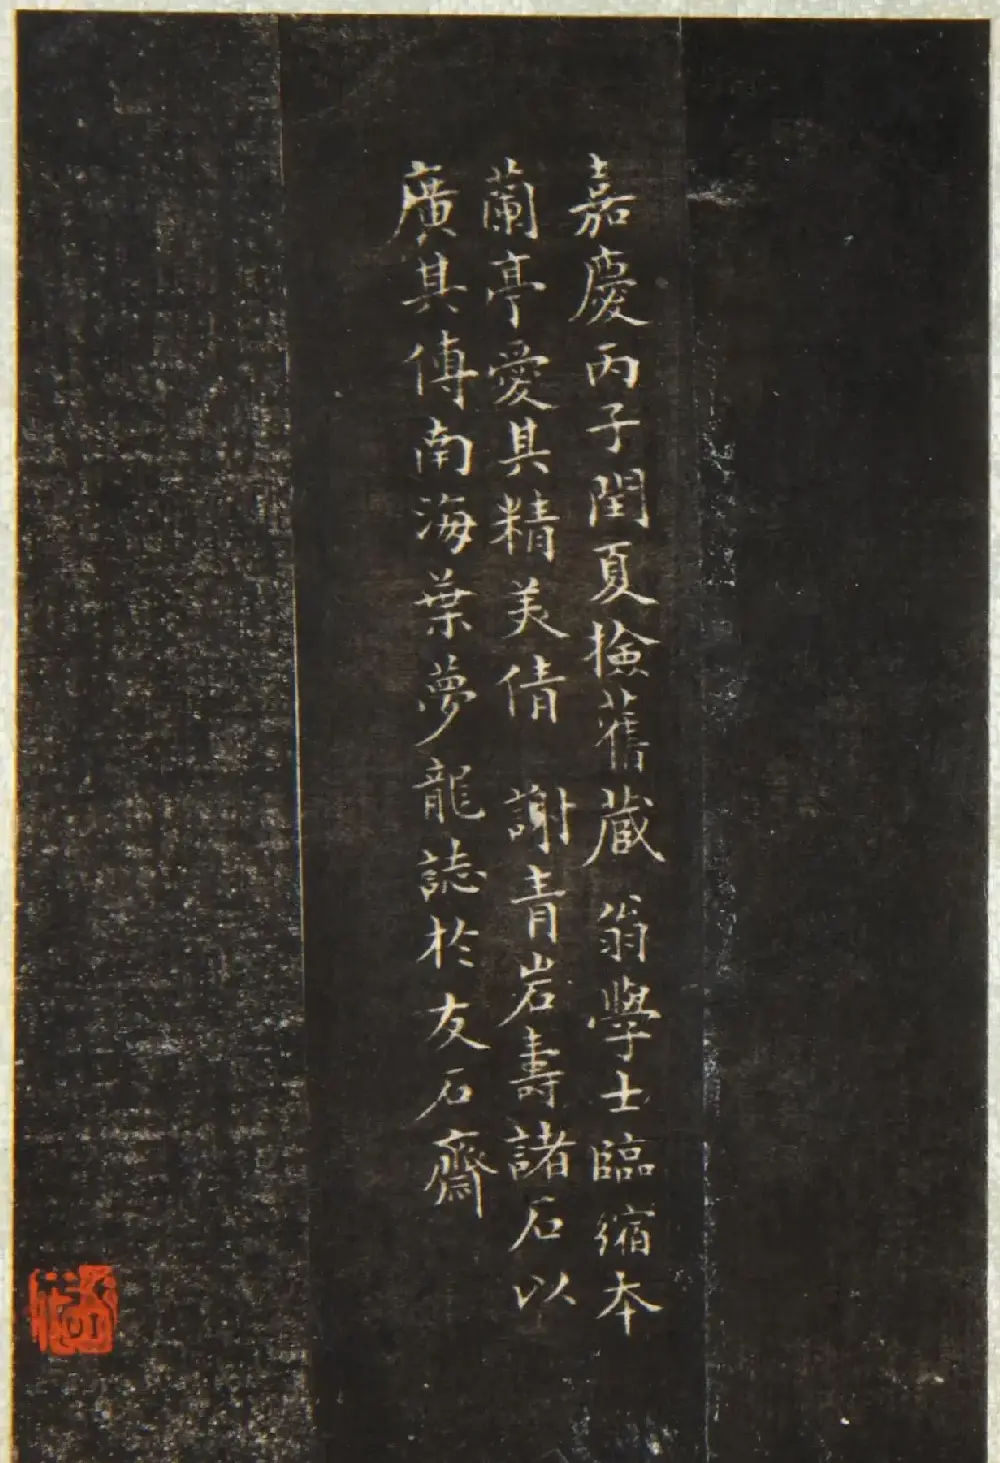 嘉慶丙子閏夏撿舊藏 翁學士臨縮本
蘭亭愛其精美倩 謝青岩壽諸石以
廣其傳南海葉夢龍誌於友石齋